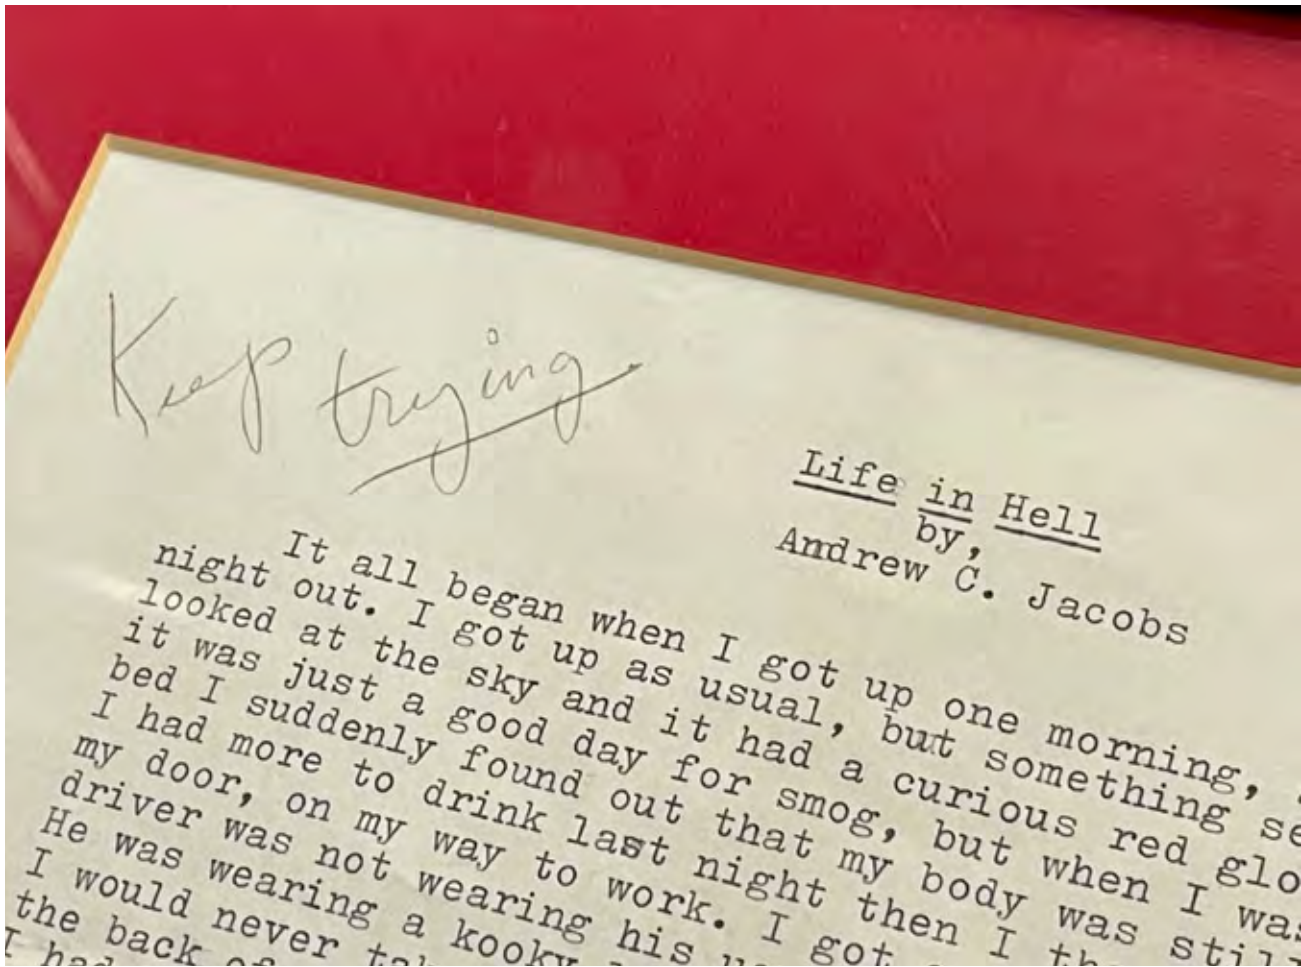 Keep trying.
Life in Hell
by,
Andrew C. Jacobs
It all began when I got up one morning,
night out. I got up as usual, but something
looked at the sky and it had a curious red
it was just a good day for smog, but when I
bed I suddenly found out that my body was
I had more to drink last night then I
my door, on my way to work. I got
driver was not wearing his
He was wearing a kooky
I would never
the back of
I had